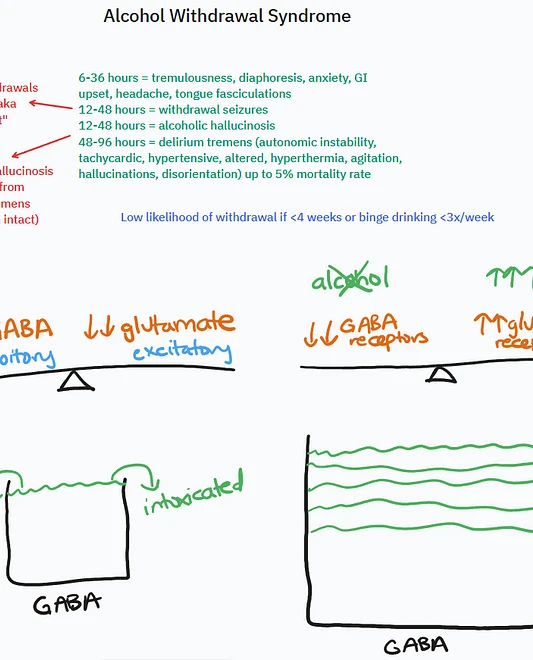 Alcohol Withdrawal Syndrome
6-36 hours = tremulousness, diaphoresis, anxiety, GI
upset, headache, tongue fasciculations
12-48 hours = withdrawal seizures
12-48 hours = alcoholic hallucinosis
48-96 hours = delirium tremens (autonomic instability,
tachycardic, hypertensive, altered, hyperthermia, agitation,
hallucinations, disorientation) up to 5% mortality rate
drawals
aka
t"
allucinosis
from
mens
intact)
Low likelihood of withdrawal if <4 weeks or binge drinking <3x/week
GABA
↓↓ glutamate
excitatory
alcohol
↑↑↑
↓↓ GABA
receptors
↑↑ glu
rece
intoxicated
GABA
GABA